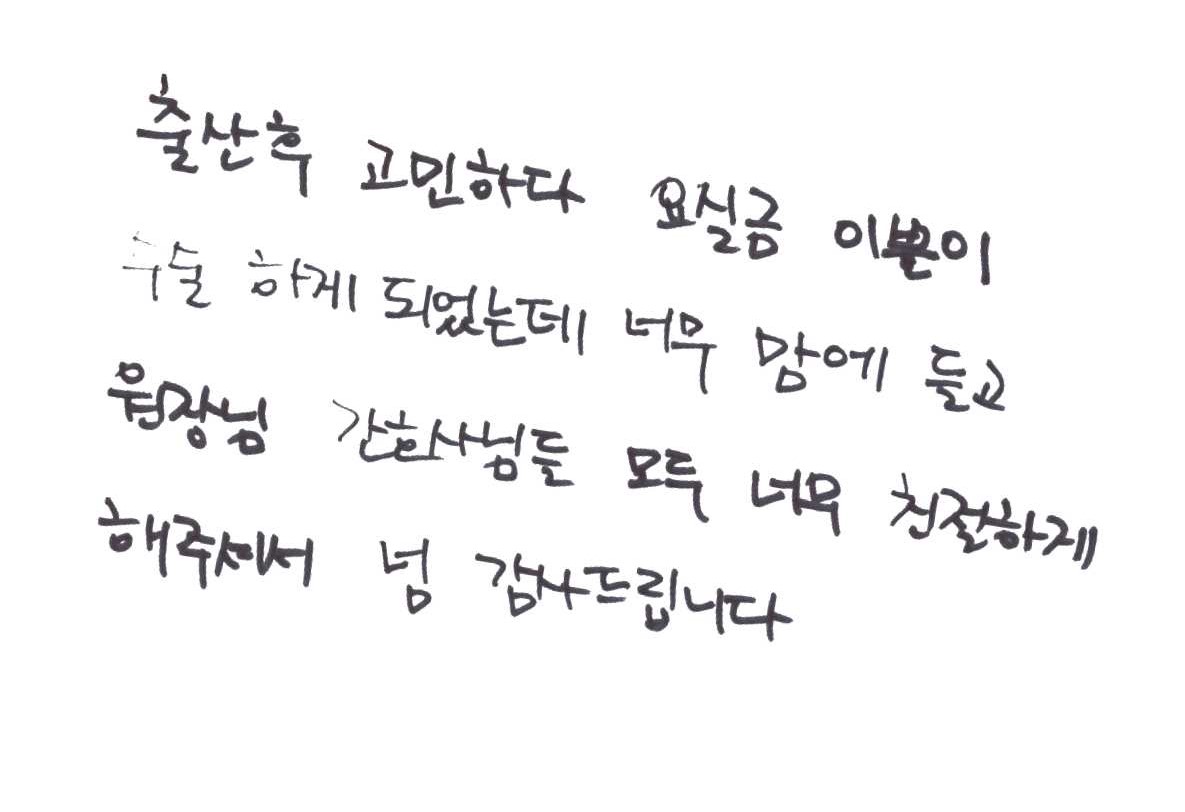 출산후 고민하다 요실금 이쁜이
수술 하게 되었는데 너무 맘에 들고
원장님 간호사님들 모두 너무 친절하게
해주셔서 넘 감사드립니다